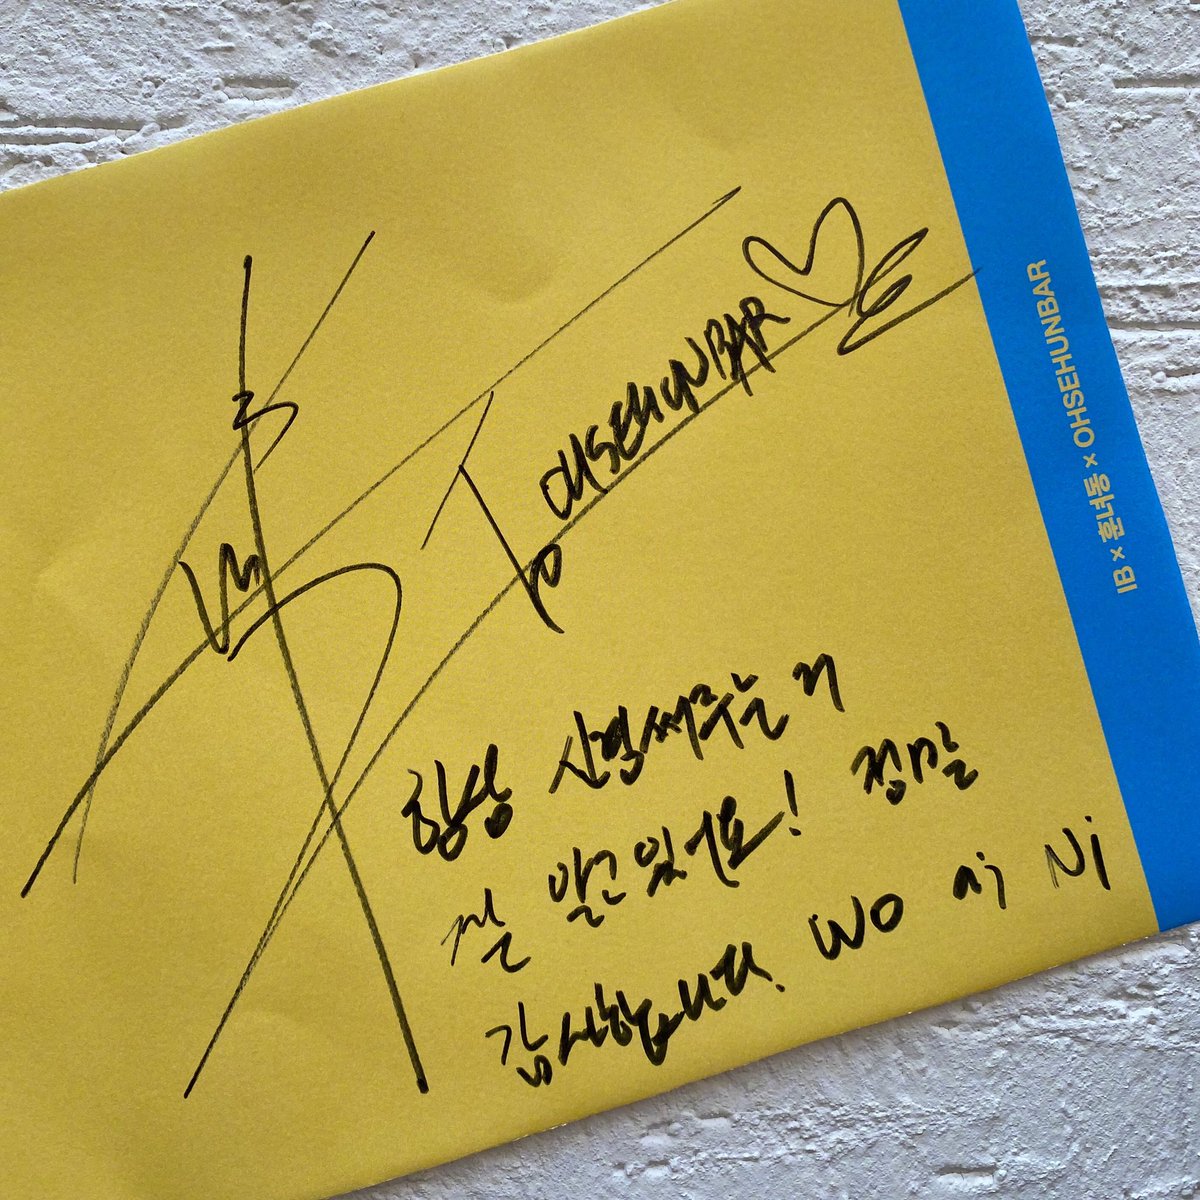 To OHSEHUNBAR♡
항상 신경써주는거
잘 알고있어요! 정말
감사합니다. Wo ai Ni
IB × 훈녀동 × OHSEHUNBAR